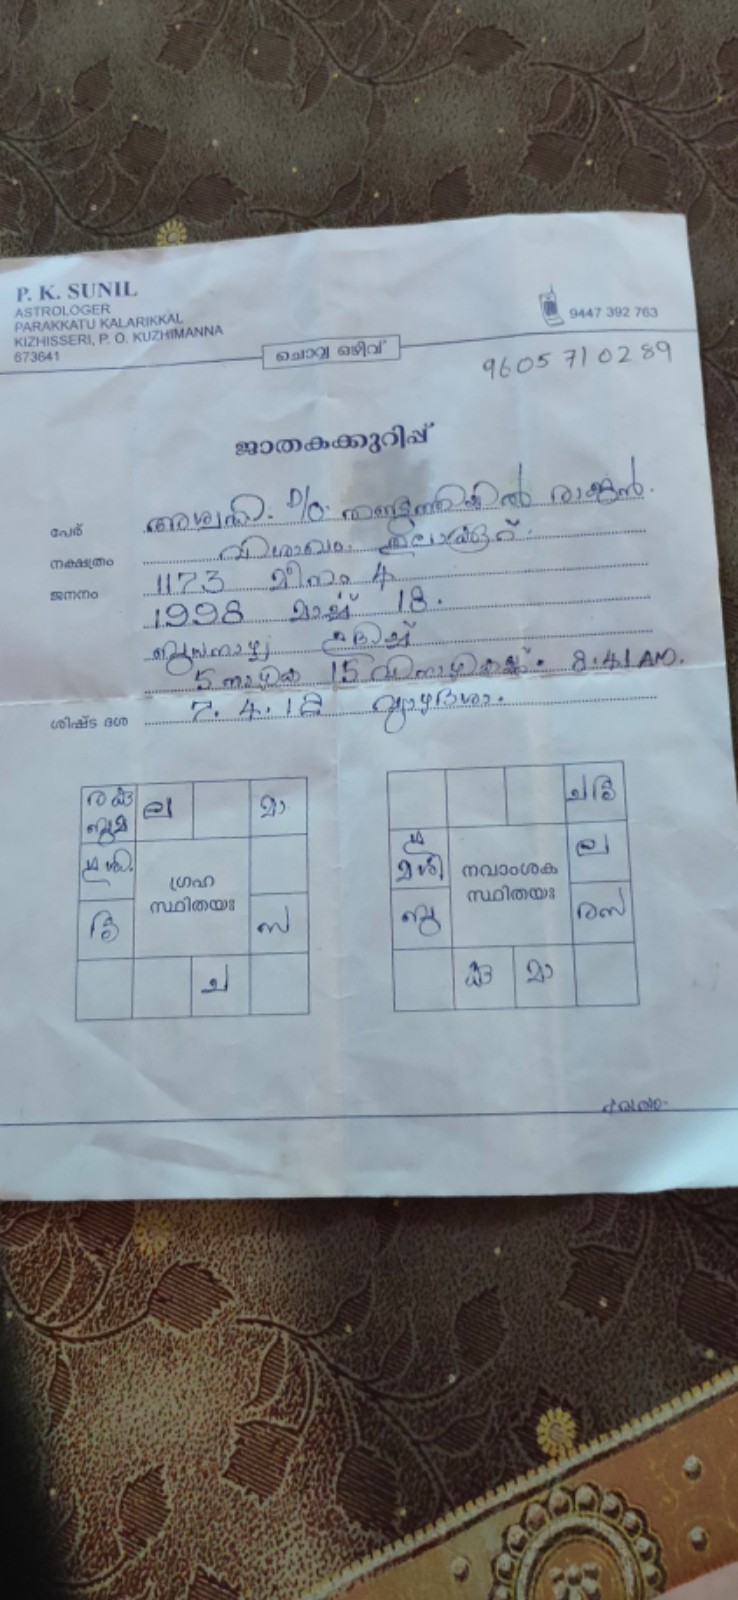 P. K. SUNIL
ASTROLOGER
PARAKKATU KALARIKKAL
KIZHISSERI, P. O. KUZHIMANNA
673641
9447 392 763
ചൊവ്വ ഒഴിവ്
9605 71 02 89
ജാതകക്കുറിപ്പ്
പേര് അശ്വതി. D/O. രാജൻ.
നക്ഷത്രം വിശാഖം.
ജനനം 1173 മീനം 4
1998 മാർച്ച് 18.
ബുധനാഴ്ച ഉദിച്ച്
5 നാഴിക 15 വിനാഴികക്ക്. 8.41 AM.
ശിഷ്ട ദശ 7. 4. 18 വ്യാഴദശാ.
ര കു ല മാ
ബു മ
ശി
ഗ്രഹ
സ്ഥിതയഃ
സ
ച
നവാംശക
സ്ഥിതയഃ
ല
മ ശി
ബു
ര സ
കു മാ